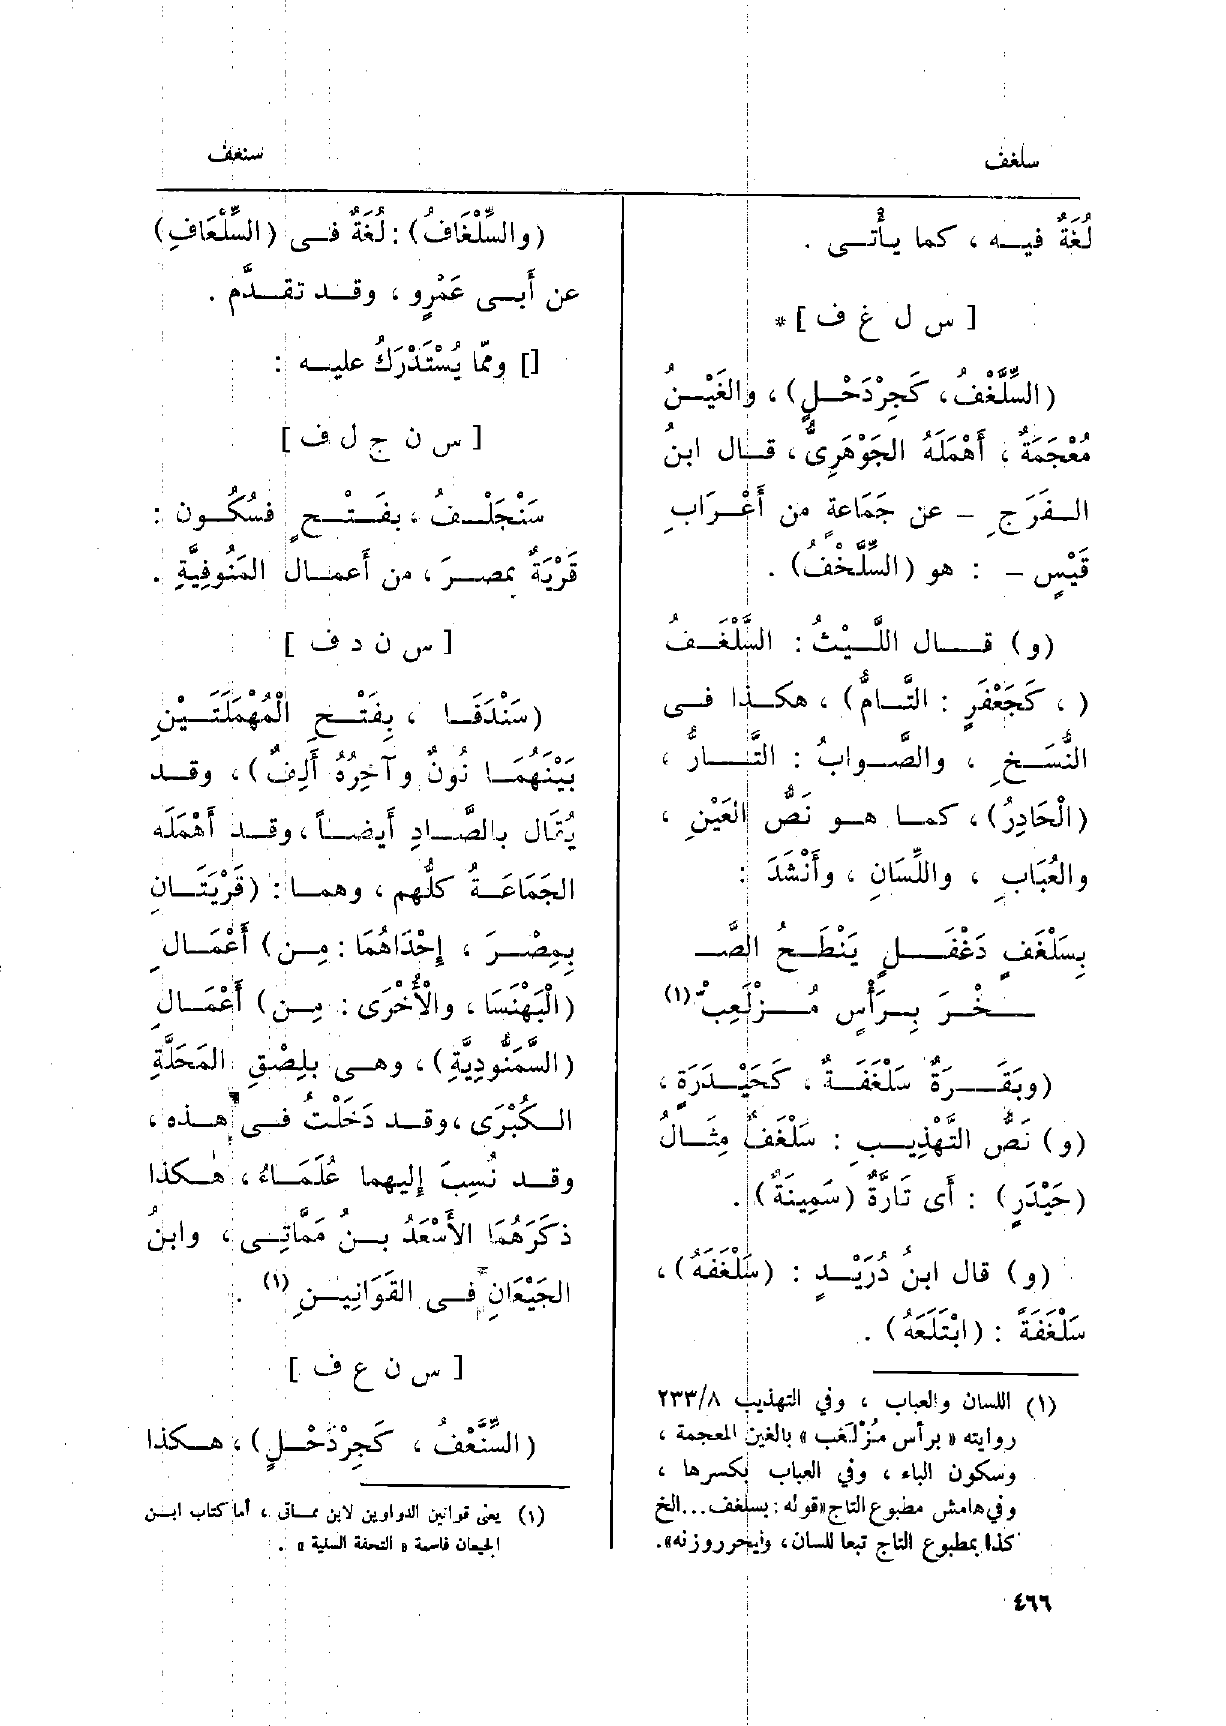 سلغف
سنغف
لُغَةٌ فيه ، كما يأْتى .
[ س ل غ ف ] *
(السِّلَّغْفُ، كَجِرْدَحْلٍ) ، والغَيْنُ
مُعْجَمَةٌ ، أَهْمَلَهُ الجَوْهَرِىُّ ، قال ابنُ
الفَرَجِ – عن جَمَاعةٍ من أَعْرَابِ
قَيْسٍ – : هو (السِّلَّخْفُ) .
(و) قال اللَّيْثُ : السَّلْغَفُ
( ، كَجَعْفَرٍ : التَّامُّ) ، هكذا فى
النُّسَخِ ، والصَّوابُ : التَّارُّ ،
(الْحَادِرُ) ، كما هو نَصُّ العَيْنِ ،
والعُبَابِ ، واللِّسَانِ ، وأَنْشَدَ :
بِسَلْغَفٍ دَغْفَلٍ يَنْطَحُ الصَّـ
ـخْرَ بِرَأْسٍ مُزْلَعِبّ (١)
(وبَقَرَةٌ سَلْغَفَةٌ ، كَحَيْدَرَةٍ ،
(و) نَصُّ التَّهْذِيبِ : سَلْغَفٌ مِثَالُ
(حَيْدَرٍ) : أَى تَارَّةٌ (سَمِينَةٌ) .
(و) قال ابنُ دُرَيْدٍ : (سَلْغَفَهُ) ،
سَلْغَفَةً : (ابْتَلَعَهُ) .
(١) اللسان والعباب ، وفي التهذيب ٢٣٣/٨
روايته « برأس مُزْلَغِب » بالغين المعجمة ،
وسكون الباء ، وفي العباب بكسرها ،
وفي هامش مطبوع التاج «قوله : بسلغف... الخ
كذا بمطبوع التاج تبعا للسان ، وليحرر وزنه».
(والسِّلْغَافُ) : لُغَةٌ فى (السِّلْعَافِ)
عن أَبى عَمْرٍو ، وقد تقدَّم .
[] وممّا يُسْتَدْرَكُ عليه :
[ س ن ج ل ف ]
سَنْجَلْفُ ، بفَتْحٍ فسُكُون :
قَرْيَةٌ بمصرَ ، من أعمال المَنُوفِيَّةِ .
[ س ن د ف ]
(سَنْدَفَا ، بِفَتْحِ الْمُهْمَلَتَيْنِ
بَيْنَهُمَا نُونٌ وآخِرُهُ أَلِفٌ) ، وقد
يُقَال بالصَّادِ أيضاً ، وقد أَهْمَلَه
الجَمَاعَةُ كلُّهم ، وهما : (قَرْيَتَانِ
بِمِصْرَ ، إِحْدَاهُمَا : مِن) أَعْمَالِ
(الْبَهْنَسَا ، والْأُخْرَى : مِن) أَعْمَالِ
(السَّمَنُّودِيَّةِ) ، وهى بلِصْقِ المَحَلَّةِ
الكُبْرَى ، وقد دَخَلْتُ فى هذه ،
وقد نُسِبَ إِليهما عُلَمَاءُ ، هٰكذا
ذكَرَهُمَا الأَسْعَدُ بنُ مَمَّاتِى ، وابنُ
الجَيْعَانِ فى القَوَانِينِ (١) .
[ س ن ع ف ]
(السِّنَّعْفُ ، كَجِرْدَحْلٍ) ، هكذا
(١) يعنى قوانين الدواوين لابن مماتى ، أما كتاب ابن
الجيعان فاسمه « التحفة السنية » .
٤٦٦